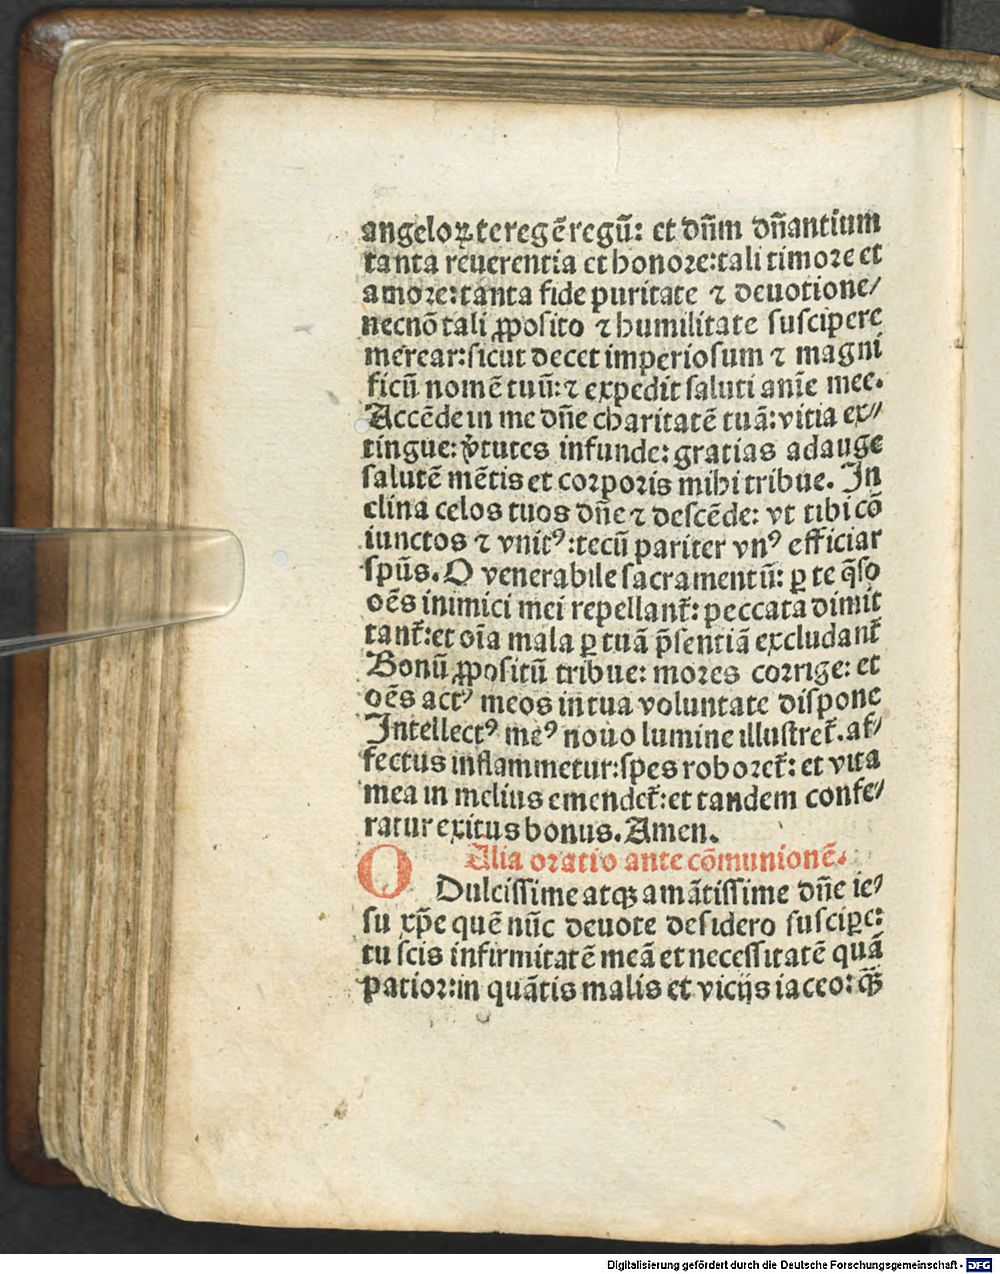 angeloꝝ te regē regū: et dn̄m dn̄antium
tanta reuerentia et honoꝛe: tali timoꝛe et
amoꝛe: tanta fide puritate ⁊ deuotione/
necnō tali ꝓposito ⁊ humilitate suscipere
merear: sicut decet imperiosum ⁊ magni
ficū nomē tuū: ⁊ expedit saluti anīe mee.
Accēde in me dn̄e charitatē tuā: vitia ex//
tingue: v̓tutes infunde: gratias adauge
salutē mētis et coꝛpoꝛis mihi tribue. In
clina celos tuos dn̄e ⁊ descēde: vt tibi cō
iunctos ⁊ vnitꝰ: tecū pariter vnꝰ efficiar
spūs. O venerabile sacramentū: ꝑ te q̄so
oēs inimici mei repellant᷑: peccata dimit
tant᷑: et oīa mala ꝑ tuā p̄sentiā excludant᷑
Bonū ꝓpositū tribue: moꝛes coꝛrige: et
oēs actꝰ meos in tua voluntate dispone
Intellectꝰ meꝰ nouo lumine illustret᷑. af/
fectus inflammetur: spes roboꝛet᷑: et vita
mea in melius emendet᷑: et tandem confe/
ratur exitus bonus. Amen.
Alia oꝛatio ante cōmunionē.
O Dulcissime atqꝫ amātissime dn̄e ie/
su xp̄e quē nūc deuote desidero suscipe:
tu scis infirmitatē meā et necessitatē quā
patioꝛ: in quātis malis et vicijs iaceo: qꝫ̄
Digitalisierung gefördert durch die Deutsche Forschungsgemeinschaft - DFG